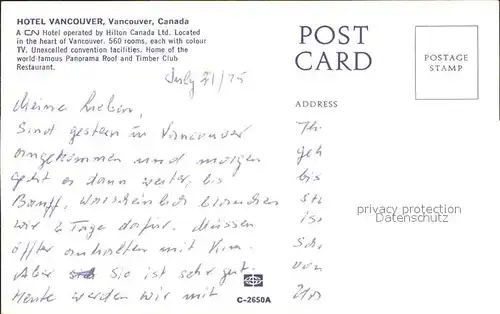 HOTEL VANCOUVER, Vancouver, Canada
A CN Hotel operated by Hilton Canada Ltd. Located
in the heart of Vancouver. 560 rooms, each with colour
TV. Unexcelled convention facilities. Home of the
world-famous Panorama Roof and Timber Club
Restaurant.
July 21/75
Meine Lieben,
Sind gestern in Vancouver
angekommen und morgen
geht es dann weiter, bis
Banff, warscheinlich brauchen
wir 2 Tage dafür. Müssen
öffter anhalten mit Kim.
Aber Sie ist sehr gut.
Heute werden wir mit
C-2650A
POST
CARD
ADDRESS
PLACE
POSTAGE
STAMP
Ihr
geh
bis
ist
von
privacy protection
Datenschutz